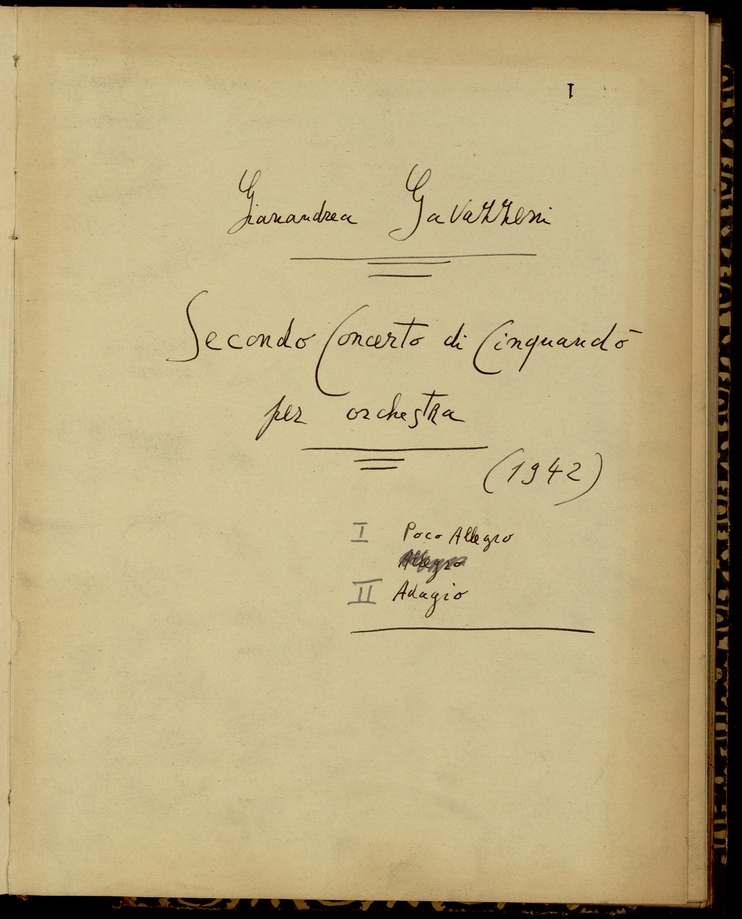 1
Gianandrea Gavazzeni
Secondo Concerto di Cinquandò
per orchestra
(1942)
I Poco Allegro
Allegro
II Adagio